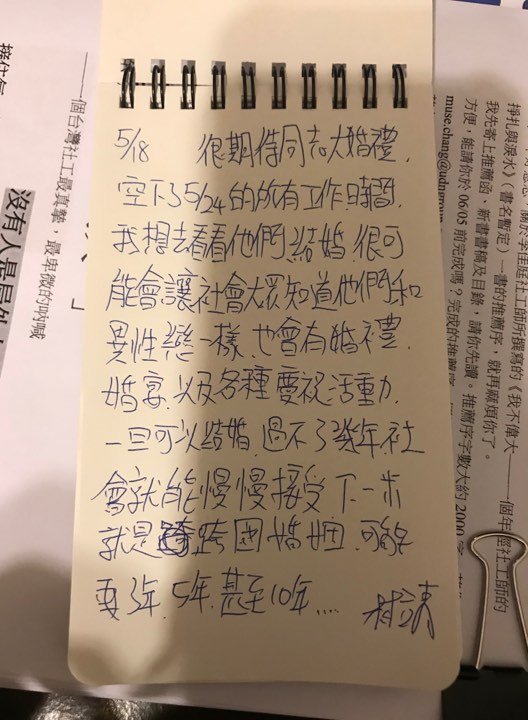 5/18 很期待同志大婚禮.
空下了5/24的所有工作時間.
我想去看看他們結婚.很可
能會讓社會大眾知道他們和
異性戀一樣.也會有婚禮.
婚宴.以及各種慶祝活動.
一旦可以結婚.過不了幾年社
會就能慢慢接受下一步
就是跨國婚姻.可能
要3年.5年.甚至10年....
林立青
社工師所撰寫的《我不偉大——一個年輕社工師的
掙扎與淚水》(書名暫定)一書的推薦序,就再麻煩你了。
我先寄上推薦函、新書書稿及目錄,請你先讀。推薦序字數大約 2000
方便,能請你於 06/05 前完成嗎?完成的推薦序
muse.chang@udngroup
——一個台灣社工最真摯,最卑微的吶喊
沒有人是局外